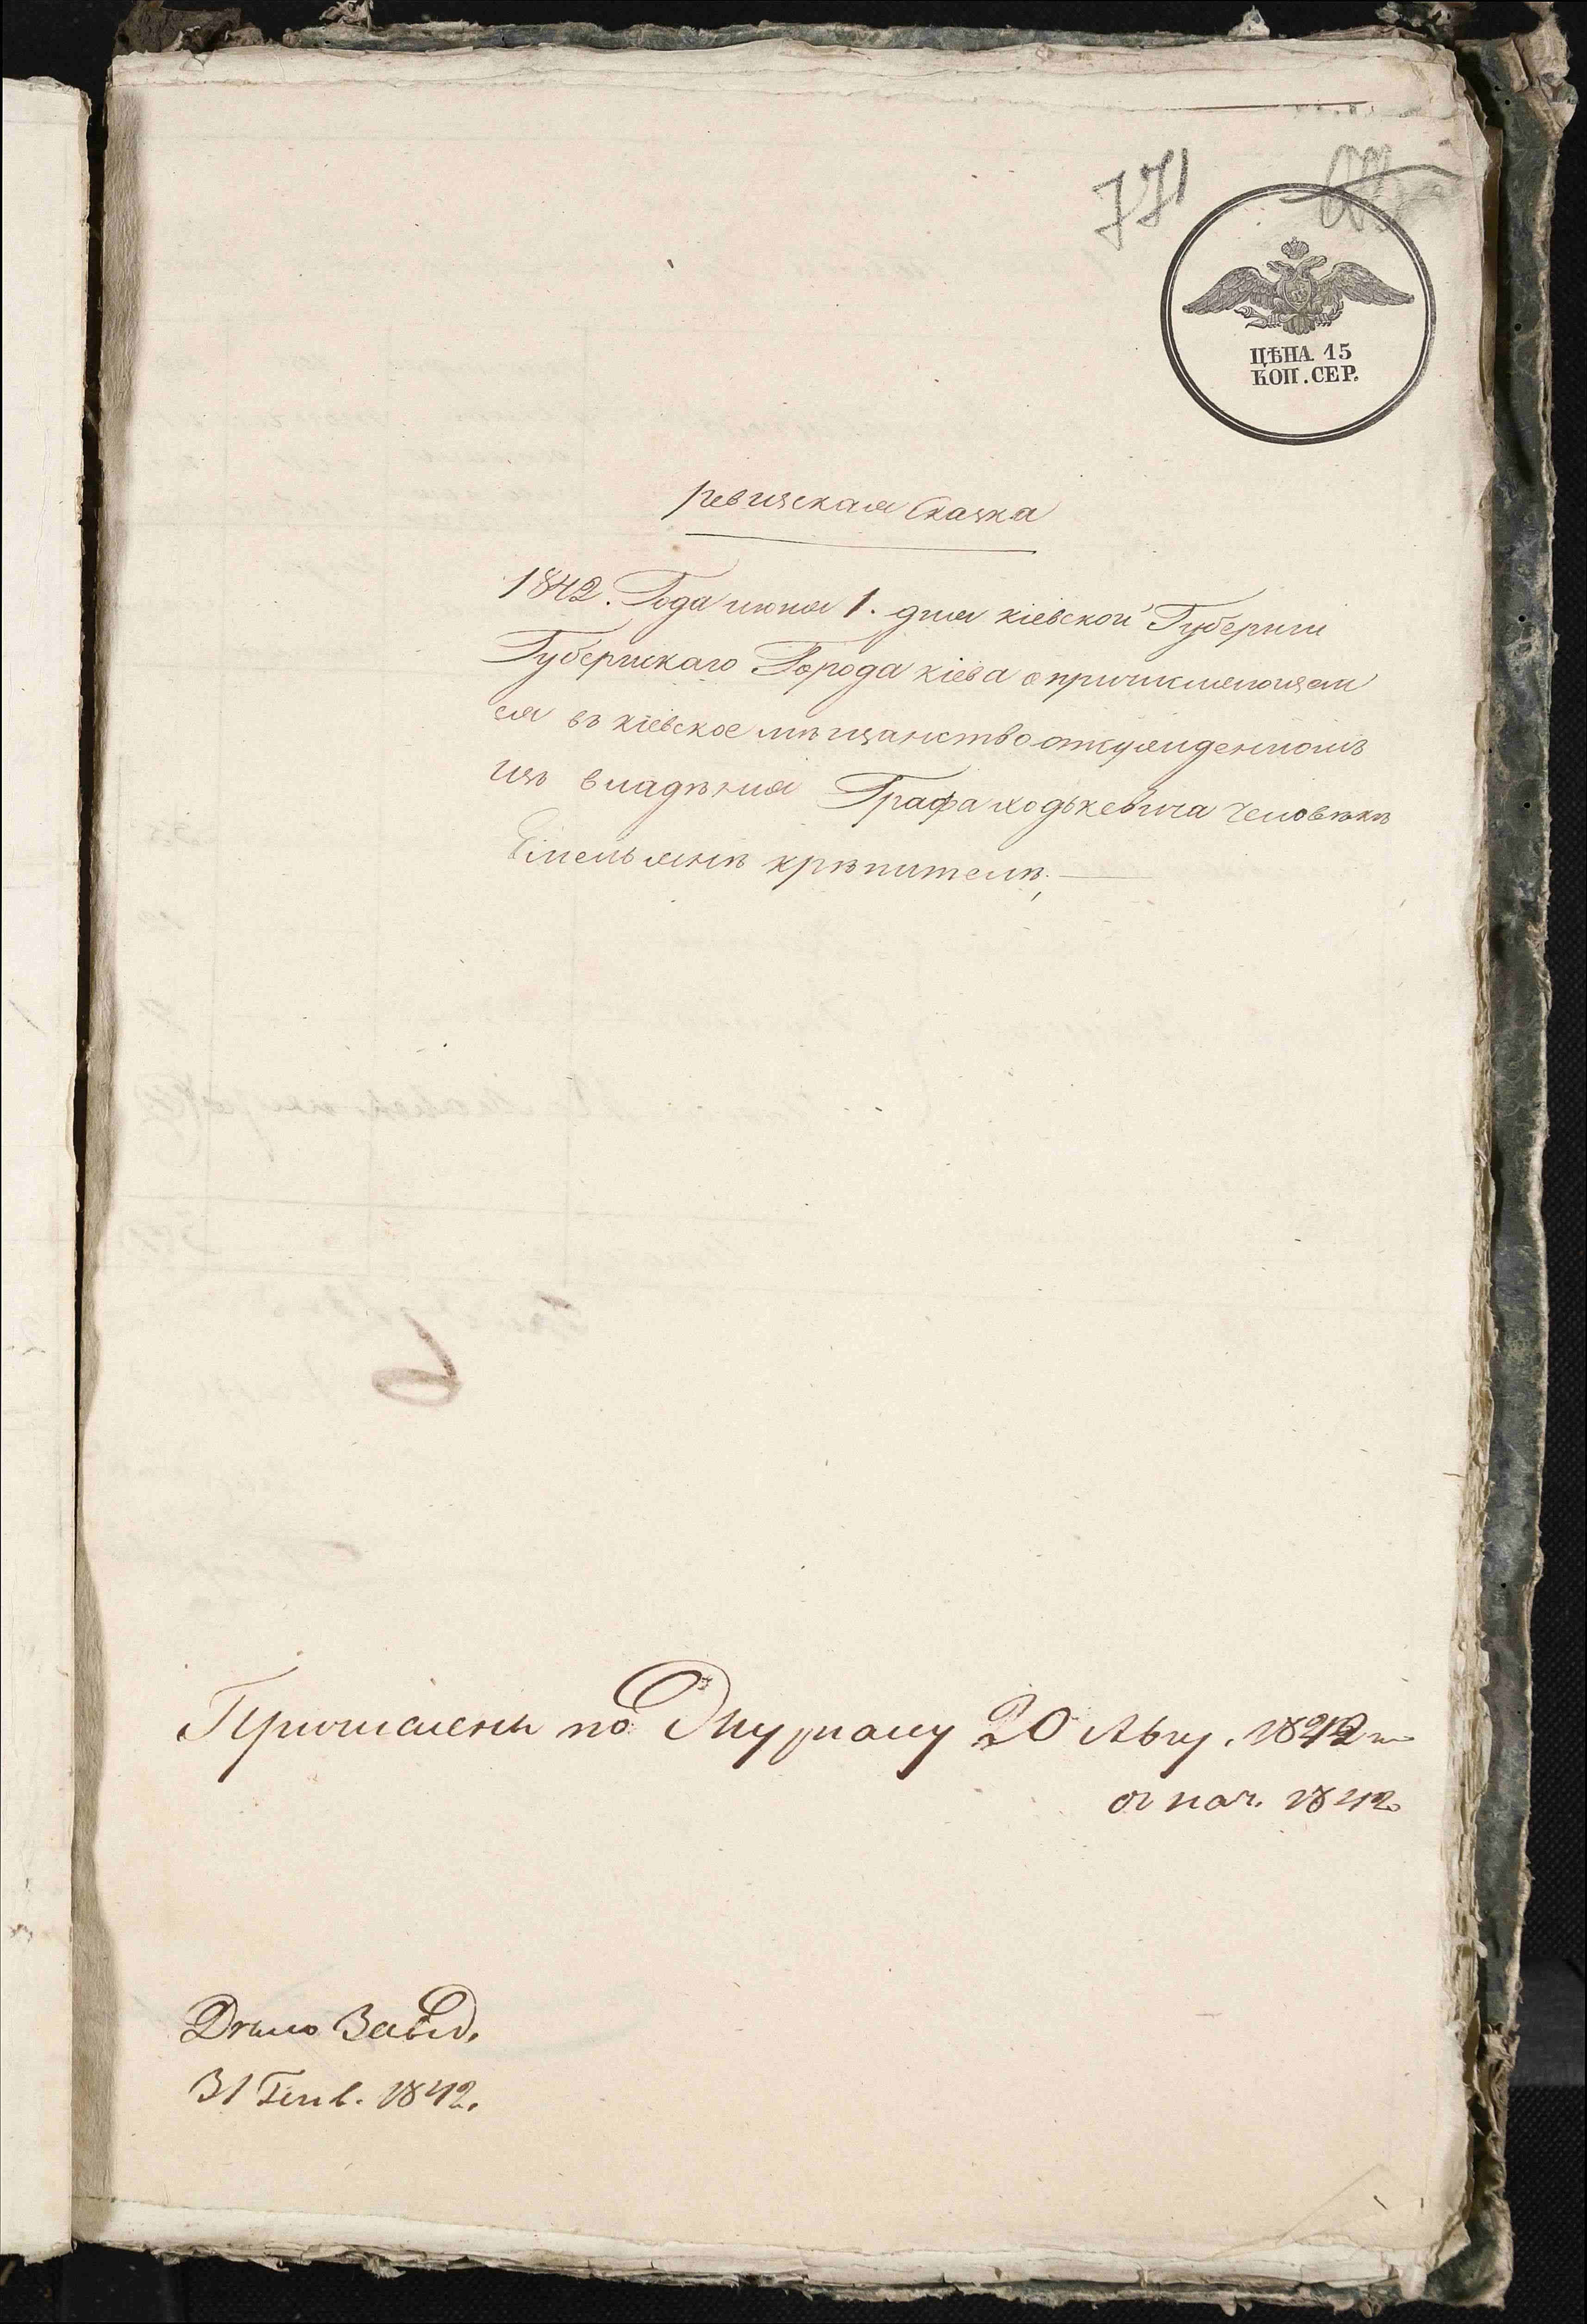 771
ЦѢНА. 15
КОП. СЕР.
ревизская Сказка
1842. Года июня 1. дня кіевской Губерніи
Губернскаго Города кіева опричисляющем
ся въ кіевское мѣщанство отсужденномъ
изъ владѣнія Графа ходькевича человѣкѣ
Емельянѣ крѣпителѣ,
Причисленъ по Журналу 20 Авгу. 1842
съ нач. 1842
Дѣло Завед.
31 Генв. 1842.